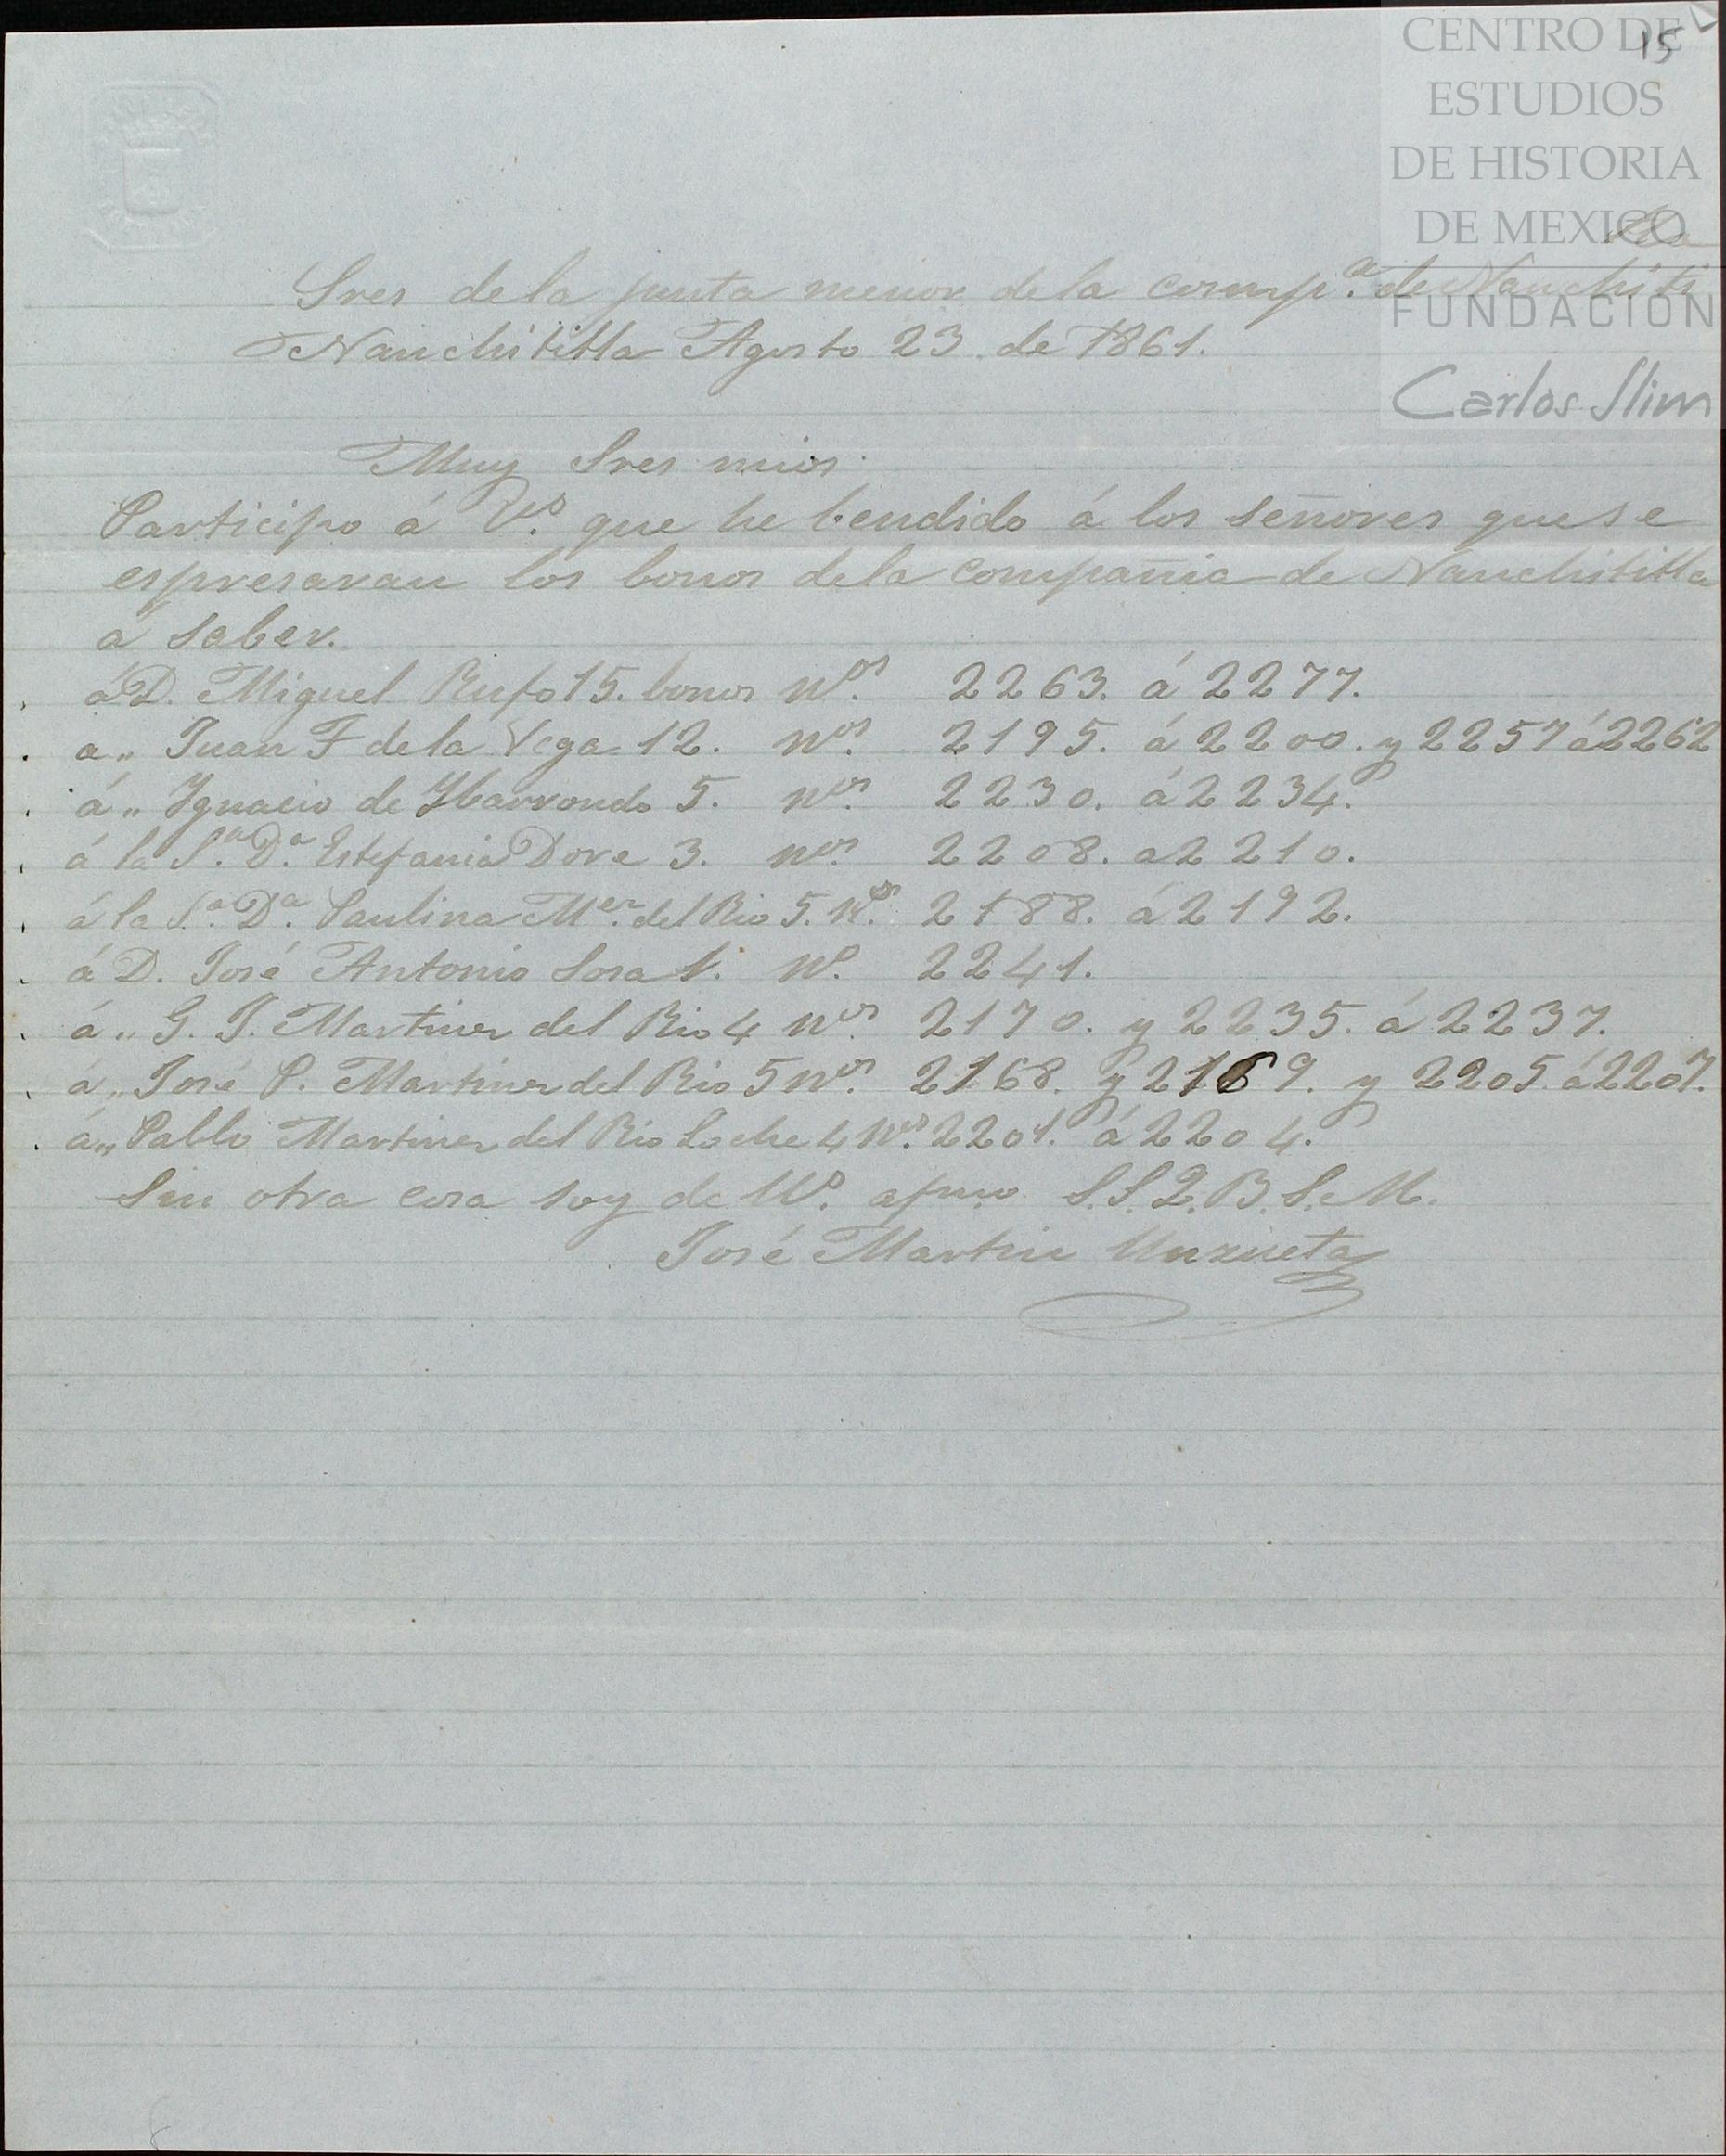 CENTRO DE
ESTUDIOS
DE HISTORIA
DE MEXICO
FUNDACIÓN
Carlos Slim
15
Sres dela junta menor dela compª. de Nanchiti
tla
Nanchititla Agosto 23. de 1861.
Muy Sres mios.
Participo á Vs. que he bendido á los señores que se
espresaran los bonos dela compañia de Nanchititla
a saber.
á D. Miguel Rufo 15. bonos Nos. 2263. á 2277.
a „ Juan F de la Vega 12. nos. 2195. á 2200. y 2257 á 2262
á „ Ygnacio de Ybarrondo 5. nos. 2230. á 2234.
á la Sª. Dª. Estefania Dove 3. nos. 2208. a 2210.
á la Sª. Dª. Paulina Mez. del Rio 5. Nos. 2188. á 2192.
á D. José Antonio Sosa 1. No. 2241.
á „ G. J. Martinez del Rio 4 nos. 2170. y 2235. á 2237.
á „ José P. Martinez del Rio 5 nos. 2168. y 2169. y 2205. á 2207.
á „ Pablo Martinez del Rio 4 Nos. 2201. á 2204.
Sin otra cosa soy de Us. afmo S.S.Q.B.S.M.
José Martin Unzueta